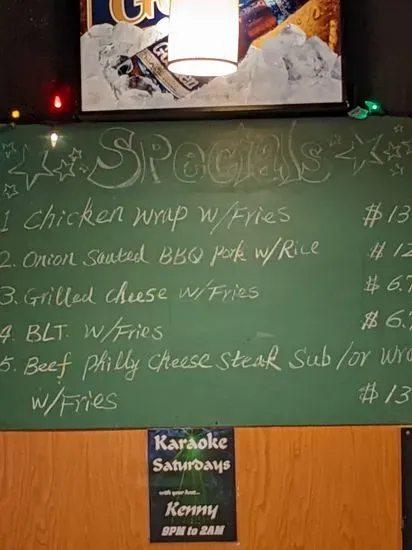 Specials
1 Chicken Wrap w/Fries $13
2. Onion Sauted BBQ Pork w/Rice $12
3. Grilled cheese w/Fries $6.7
4. BLT w/Fries $6.
5. Beef Philly Cheese Steak Sub/or Wra
w/Fries $13
Karaoke
Saturdays
with your host...
Kenny
9PM to 2AM